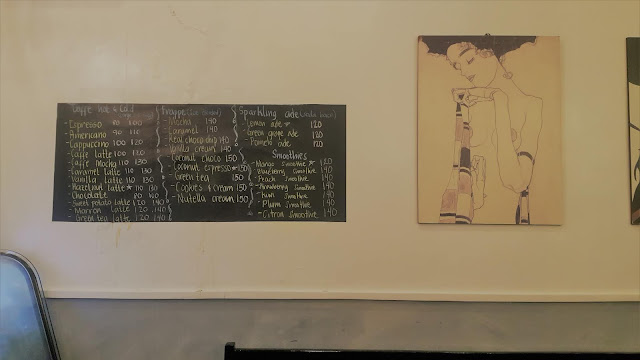 Caffe hot & cold
- Espresso 80 100
- Americano 90 110
- Cappuccino 100 120
- Caffe latte 100 120
- Caffe Mocha 110 130
- Caramel Latte 110 130
- Vanilla latte 110 130
- Hazelnut latte * 110 130
- Chocolate
- Sweet potato latte 120 140
- Marron Latte 120 140
- Green tea latte 120 140
Frappe
- Mocha 140
- Caramel 140
- Real choco chip 140
- Vanilla cream 140
- Coconut choco 150
- Coconut espresso * 150
- Green tea 150
- Cookies & cream 150
- Nutella cream 150
Sparkling ade
- Lemon ade * 120
- Green grape ade 120
- Pomelo ade 120
Smoothies
- Mango Smoothie * 120
- Blueberry Smoothie 140
- Peach Smoothie 140
- Strawberry Smoothie 140
- Kiwi Smoothie 140
- Plum Smoothie 140
- Citron Smoothie 140